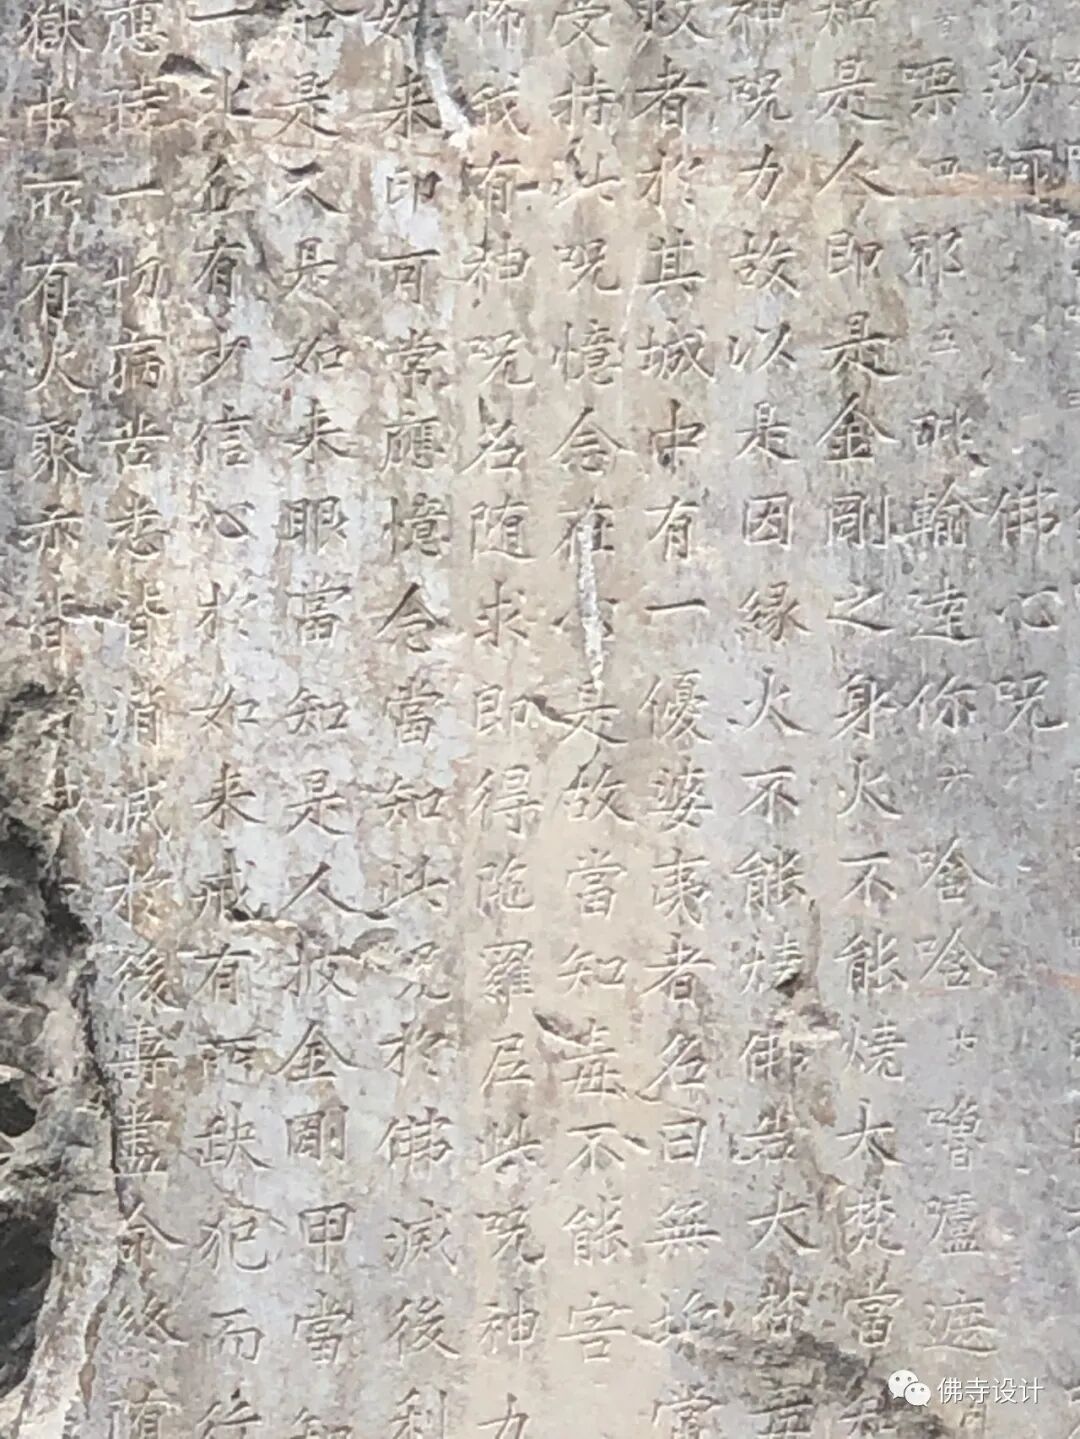 佛心咒
唎 耶 吡輸達你 六 唅唅 七 嚕嚧遮
是人即是金剛之身火不能燒大梵當知
神咒力故以是因緣火不能燒佛告大梵
救者於其城中有一優婆夷者名曰無垢當
受持此咒憶念在心是故當知毒不能害
怖我有神咒名随求即得陁羅尼此咒神力
如来印可常應憶念當知此咒於佛滅後利
是人是如来眼當知是人披金剛甲當知
一比丘有少信心於如来戒有所缺犯而行
應時一切病苦悉皆消滅於後壽盡命終
獄中所有火聚亦皆
佛寺设计